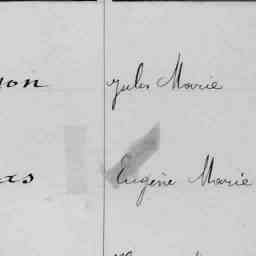 yon Jules Marie
Eugène Marie